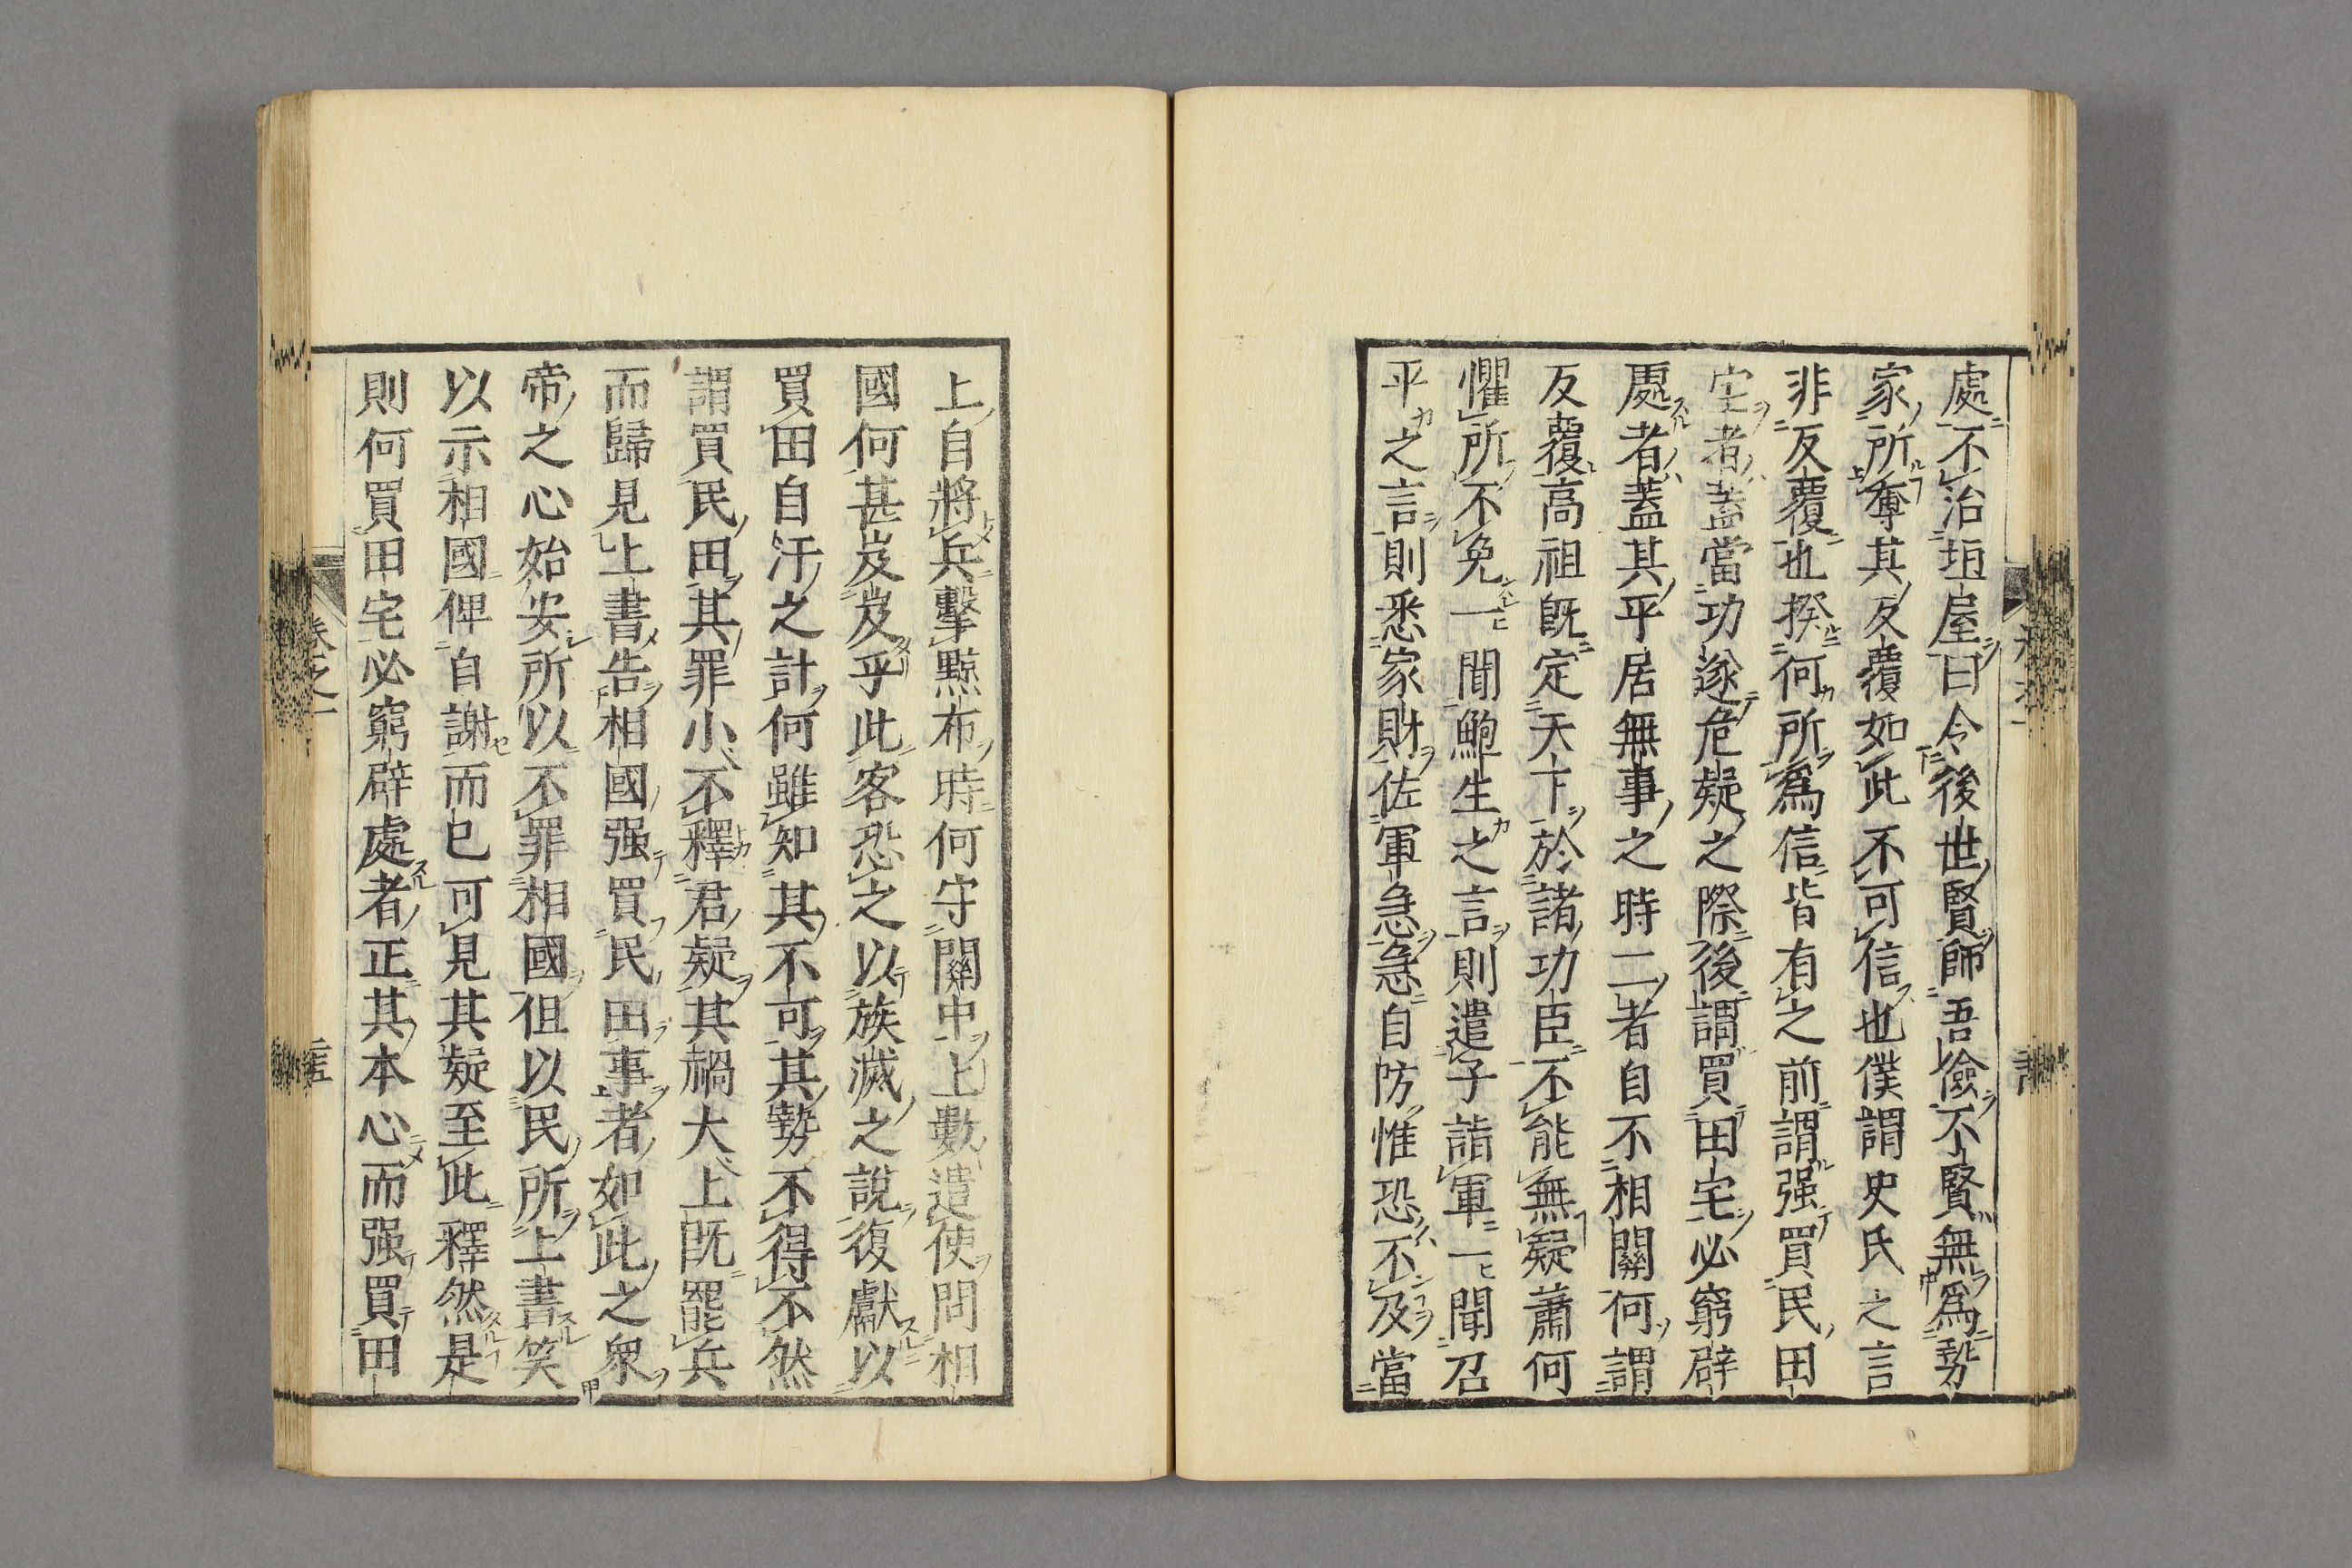 處不治垣屋曰令後世賢師吾儉不賢無爲勢
家所奪其反覆如此不可信也僕謂史氏之言
非反覆也揆何所爲信皆有之前謂强買民田
宅者蓋當功遂危疑之際後謂買田宅必窮辟
處者蓋其平居無事之時二者自不相關何謂
反覆高祖既定天下於諸功臣不能無疑蕭何
懼所不免一聞鮑生之言則遣子詣軍一聞召
平之言則悉家財佐軍急急自防惟恐不及當
上自將兵擊黥布時何守關中上數遣使問相
國何甚岌岌乎此客恐之以族滅之說復獻以
買田自汙之計何雖知其不可其勢不得不然
謂買民田其罪小不釋君疑其禍大上既罷兵
而歸見上書告相國强買民田事者如此之衆
帝之心始安所以不罪相國但以民所上書笑
以示相國俾自謝而已可見其疑至此釋然是
則何買田宅必窮辟處者正其本心而强買田
卷之一